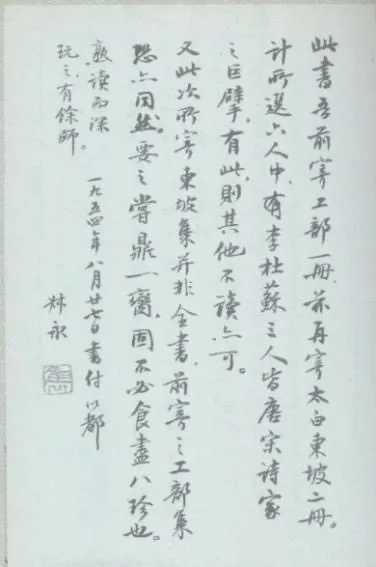 此書吾前寄工部一冊，茲再寄太白東坡二冊。
計所選六人中，有李杜蘇三人皆唐宋詩家
之巨擘，有此，則其他不讀亦可。
又此次所寄東坡集並非全書，前寄之工部集
恐亦同然。要之嘗鼎一臠，固不必食盡八珍也。
熟读而深
玩之，有餘師。
一九五四年八月廿七日書付以都
林永